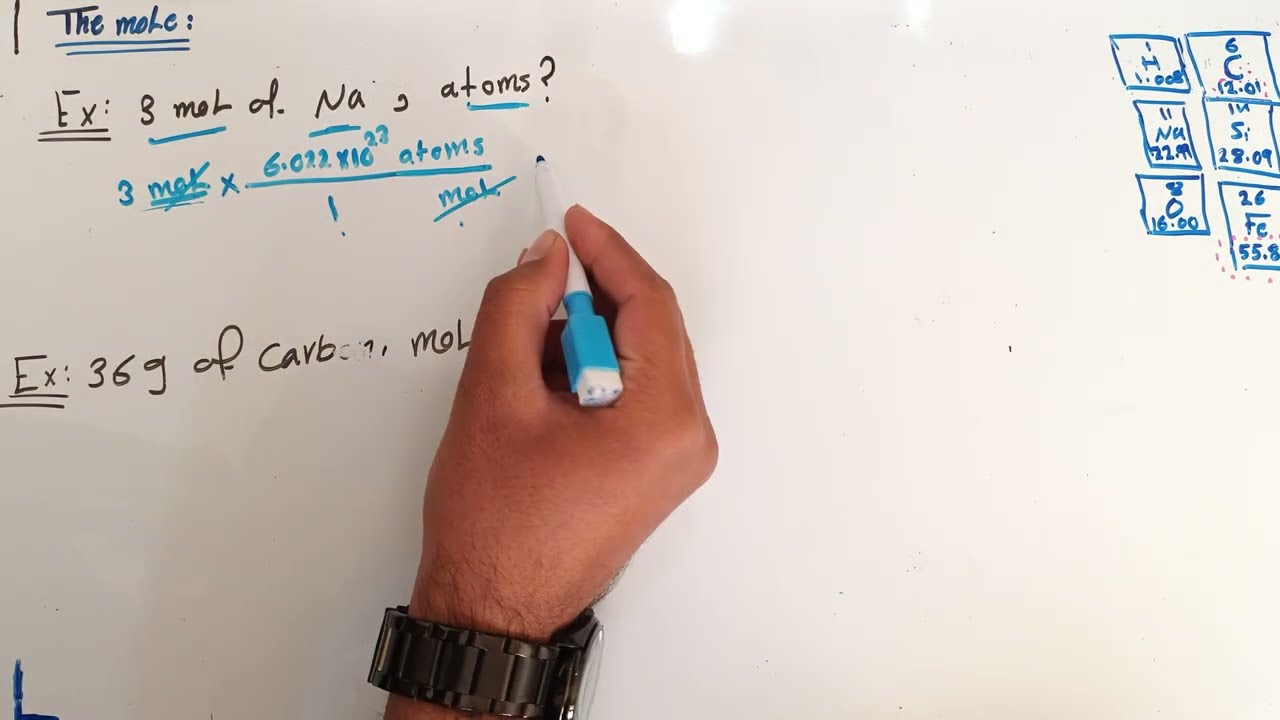 The mole:
Ex: 3 mol of Na , atoms?
3 mol × 6.022×10²³ atoms
1 mol
Ex: 36 g of carbon, mol
1
H
1.008
6
C
12.01
11
Na
22.99
14
Si
28.09
8
O
16.00
26
Fe
55.8